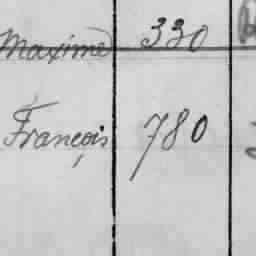 Maxime 330
François 780